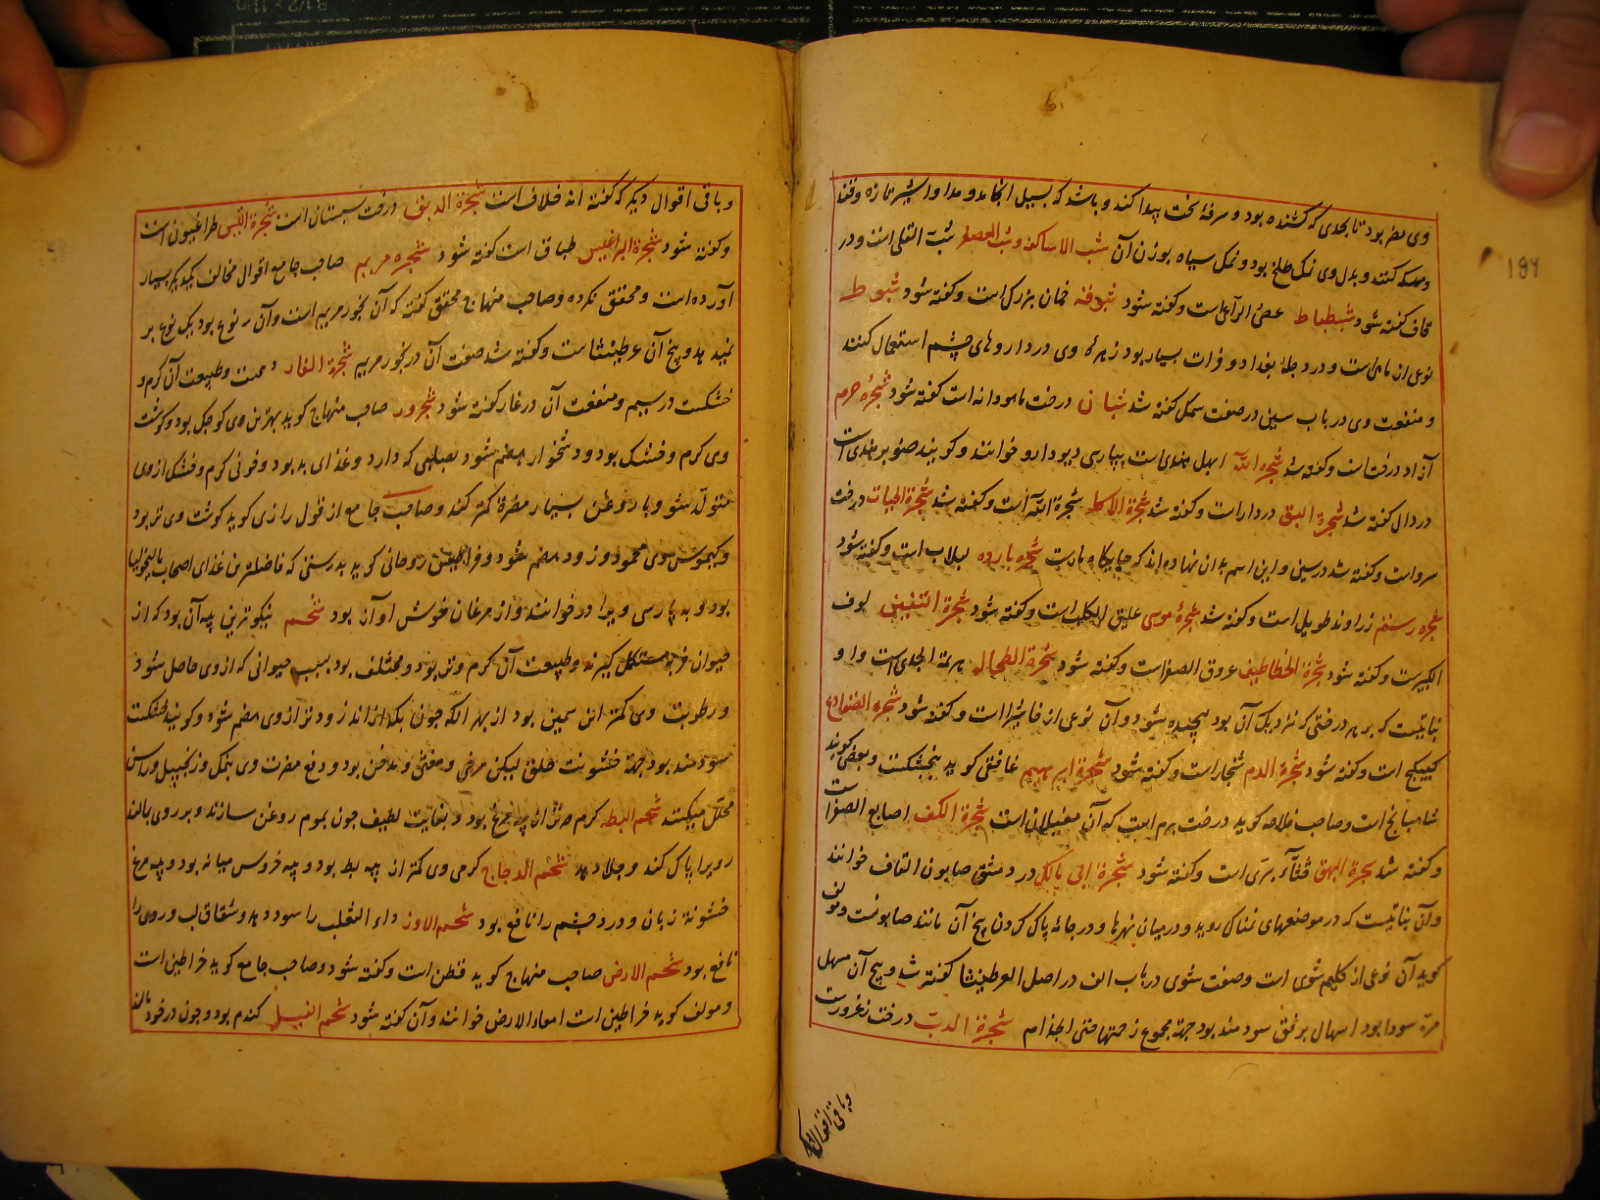 وی مضر بود تا بحدی که کشنده بود و سرفهٔ سخت پیدا کند و باشد که بسیل انجامد و مداوا بشیر تازه و قند
و مسکه کنند و بدل وی نمک طلخ بود و نمک سیاه بوزن آن شب الاساکفه و شب العصفر شب القلی است و در
قاف گفته شود شبطباط عصی الراعی است و گفته شود شوقه خمان بزرگ است و گفته شود شبوط
نوعی از ماهی است و در دجلهٔ بغداد و فرات بسیار بود زهرهٔ وی در داروهای چشم استعمال کنند
و منفعت وی در باب سین در صفت سمک گفته شد شبان درخت ماهودانه است گفته شود شجرهٔ حرم
آزاد درخت است و گفته شد شجرة الله ابهل هندی است بپارسی دیودارو خوانند و گویند صنوبر هندی است
در دال گفته شد شجرة البق دردار است و گفته شد شجرة الله است و گفته شد شجرة الحیات درخت
سرو است و گفته شد در سین و این اسم بدان نهاده اند که جایگاه مارست شجره بارده لبلاب است و گفته شود
شجره رستم زراوند طویل است و گفته شد شجرهٔ موسی علیق الکلب است و گفته شود شجرة التنین لوف
الکبیرست و گفته شود شجرة الخطاطیف عروق الصفر است و گفته شود شجرة الطحال بهرمة الجدی است و او
نباتیست که بر هر درختی که نزدیک آن بود پیچیده شود و آن نوعی از فاشرا است و گفته شود شجرة الضفادع
کبیکج است و گفته شود شجرة الدم شنجار است و گفته شود شجرة ابرهیم غافقی گوید پنجنگشت و بعضی گویند
شاهبانج است و صاحب خلاصه گوید درخت مریم است که آن مغیلان است شجرة الکف اصابع الصفر است
و گفته شد شجرة البهق قثاء بری است و گفته شود شجرة ابی مالک در دمشق صابون القاف خوانند
و آن نباتیست که در موضعهای نمناک روید و در میان نهرها و در جامه پاک کردن بیخ آن مانند صابونست و مولف
گوید آن نوعی از کلیم شوی است و صفت شوی در باب الف در اصل العرطنیثا گفته شد و بیخ آن مسهل
مرّه سودا بود اسهال برفق سودمند بود جهة مجموع زحمتها حتی الجذام شجرة الدب درخت زعرورست
و باقی اقوال
و باقی اقوال دیگر که گفته اند خلاف است شجرة الدبق درخت سبستان است شجرة القبس طراغیون است
و گفته شود شجرة البراغیس طباق است گفته شود شجره مریم صاحب جامع اقوال مخالف یکدیگر بسیار
آورده است و محقق نکرده و صاحب منهاج محقق گفت که آن بخور مریم است و آن نوع بود یک نوع بر
نمیدهد و بیخ آن عرطنیثا است و گفته شد صفت آن در بخور مریم شجرة الغار دهمست و طبیعت آن گرم و
خشکست در سیم و منفعت آن در غار گفته شود شحرور صاحب منهاج گوید بهترین وی کوچک بود و گوشت
وی گرم و خشک بود و دشخوار هضم شود بصلبی که دارد و غذای بد بود و خونی گرم و خشک از وی
متولّد شود و با روغن بسیار مضرة کمتر کند و صاحب جامع از قول رازی گوید گوشت وی تر بود
و کیموس وی محمود و زود هضم شود و فراجیقن روحانی گوید بدرستی که فاضلترین غذای اصحاب مالیخولیا
بود و بپارسی ویرا در خوانند و از مرغان خوش آواز بود شحم نیکوترین پیه آن بود که از
حیوان فربه مستکمل گیرند و طبیعت آن گرم و تر بود و مختلف بود بسبب حیوانی که از وی حاصل شود و
و رطوبت وی کمتر از سمین بود از بهر آنکه چون بگدازاند زودتر از وی هضم شود و گویند خشکست
سودمند بود جهة خشونت حلق لیکن مرخی و مغثی و مدخن بود و دفع مضرت وی بنمک و زنجبیل و راسن
محلل میکنند شحم البط گرم تر از پیه مرغ بود و بغایت لطیف چون بموم روغن سازند و بر روی مالند
رویرا پاک کند و جلا دهد شحم الدجاج گرمی وی کمتر از پیه بط بود و پیه خروس میانه بود و پیه مرغ
خشونة زبان و درد چشم را نافع بود شحم الاوز داء الثعلب را سود دهد و شقاق لب و روی را
نافع بود شحم الارض صاحب منهاج گوید قطن است و گفته شود و صاحب جامع گوید خراطین است
و مولف گوید خراطین است امعاء الارض خوانند و آن گفته شود شحم الفیل گندم بود و چون در خود مالند